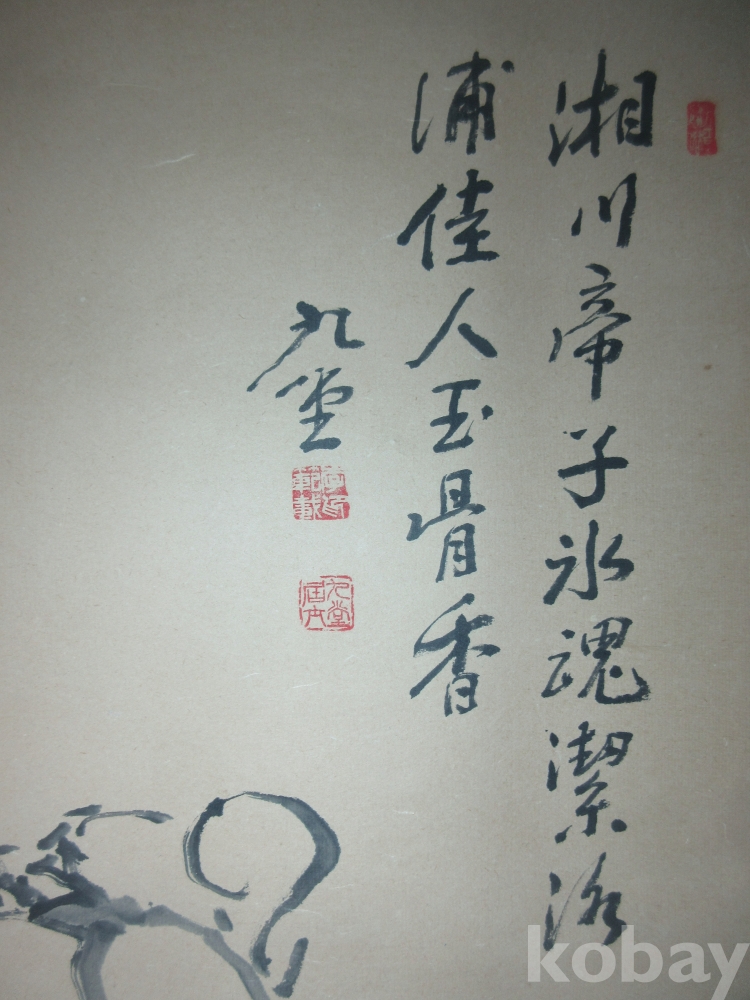 湘川帝子氷魂潔洛
浦佳人玉骨香
九堂
九堂居士
kobay